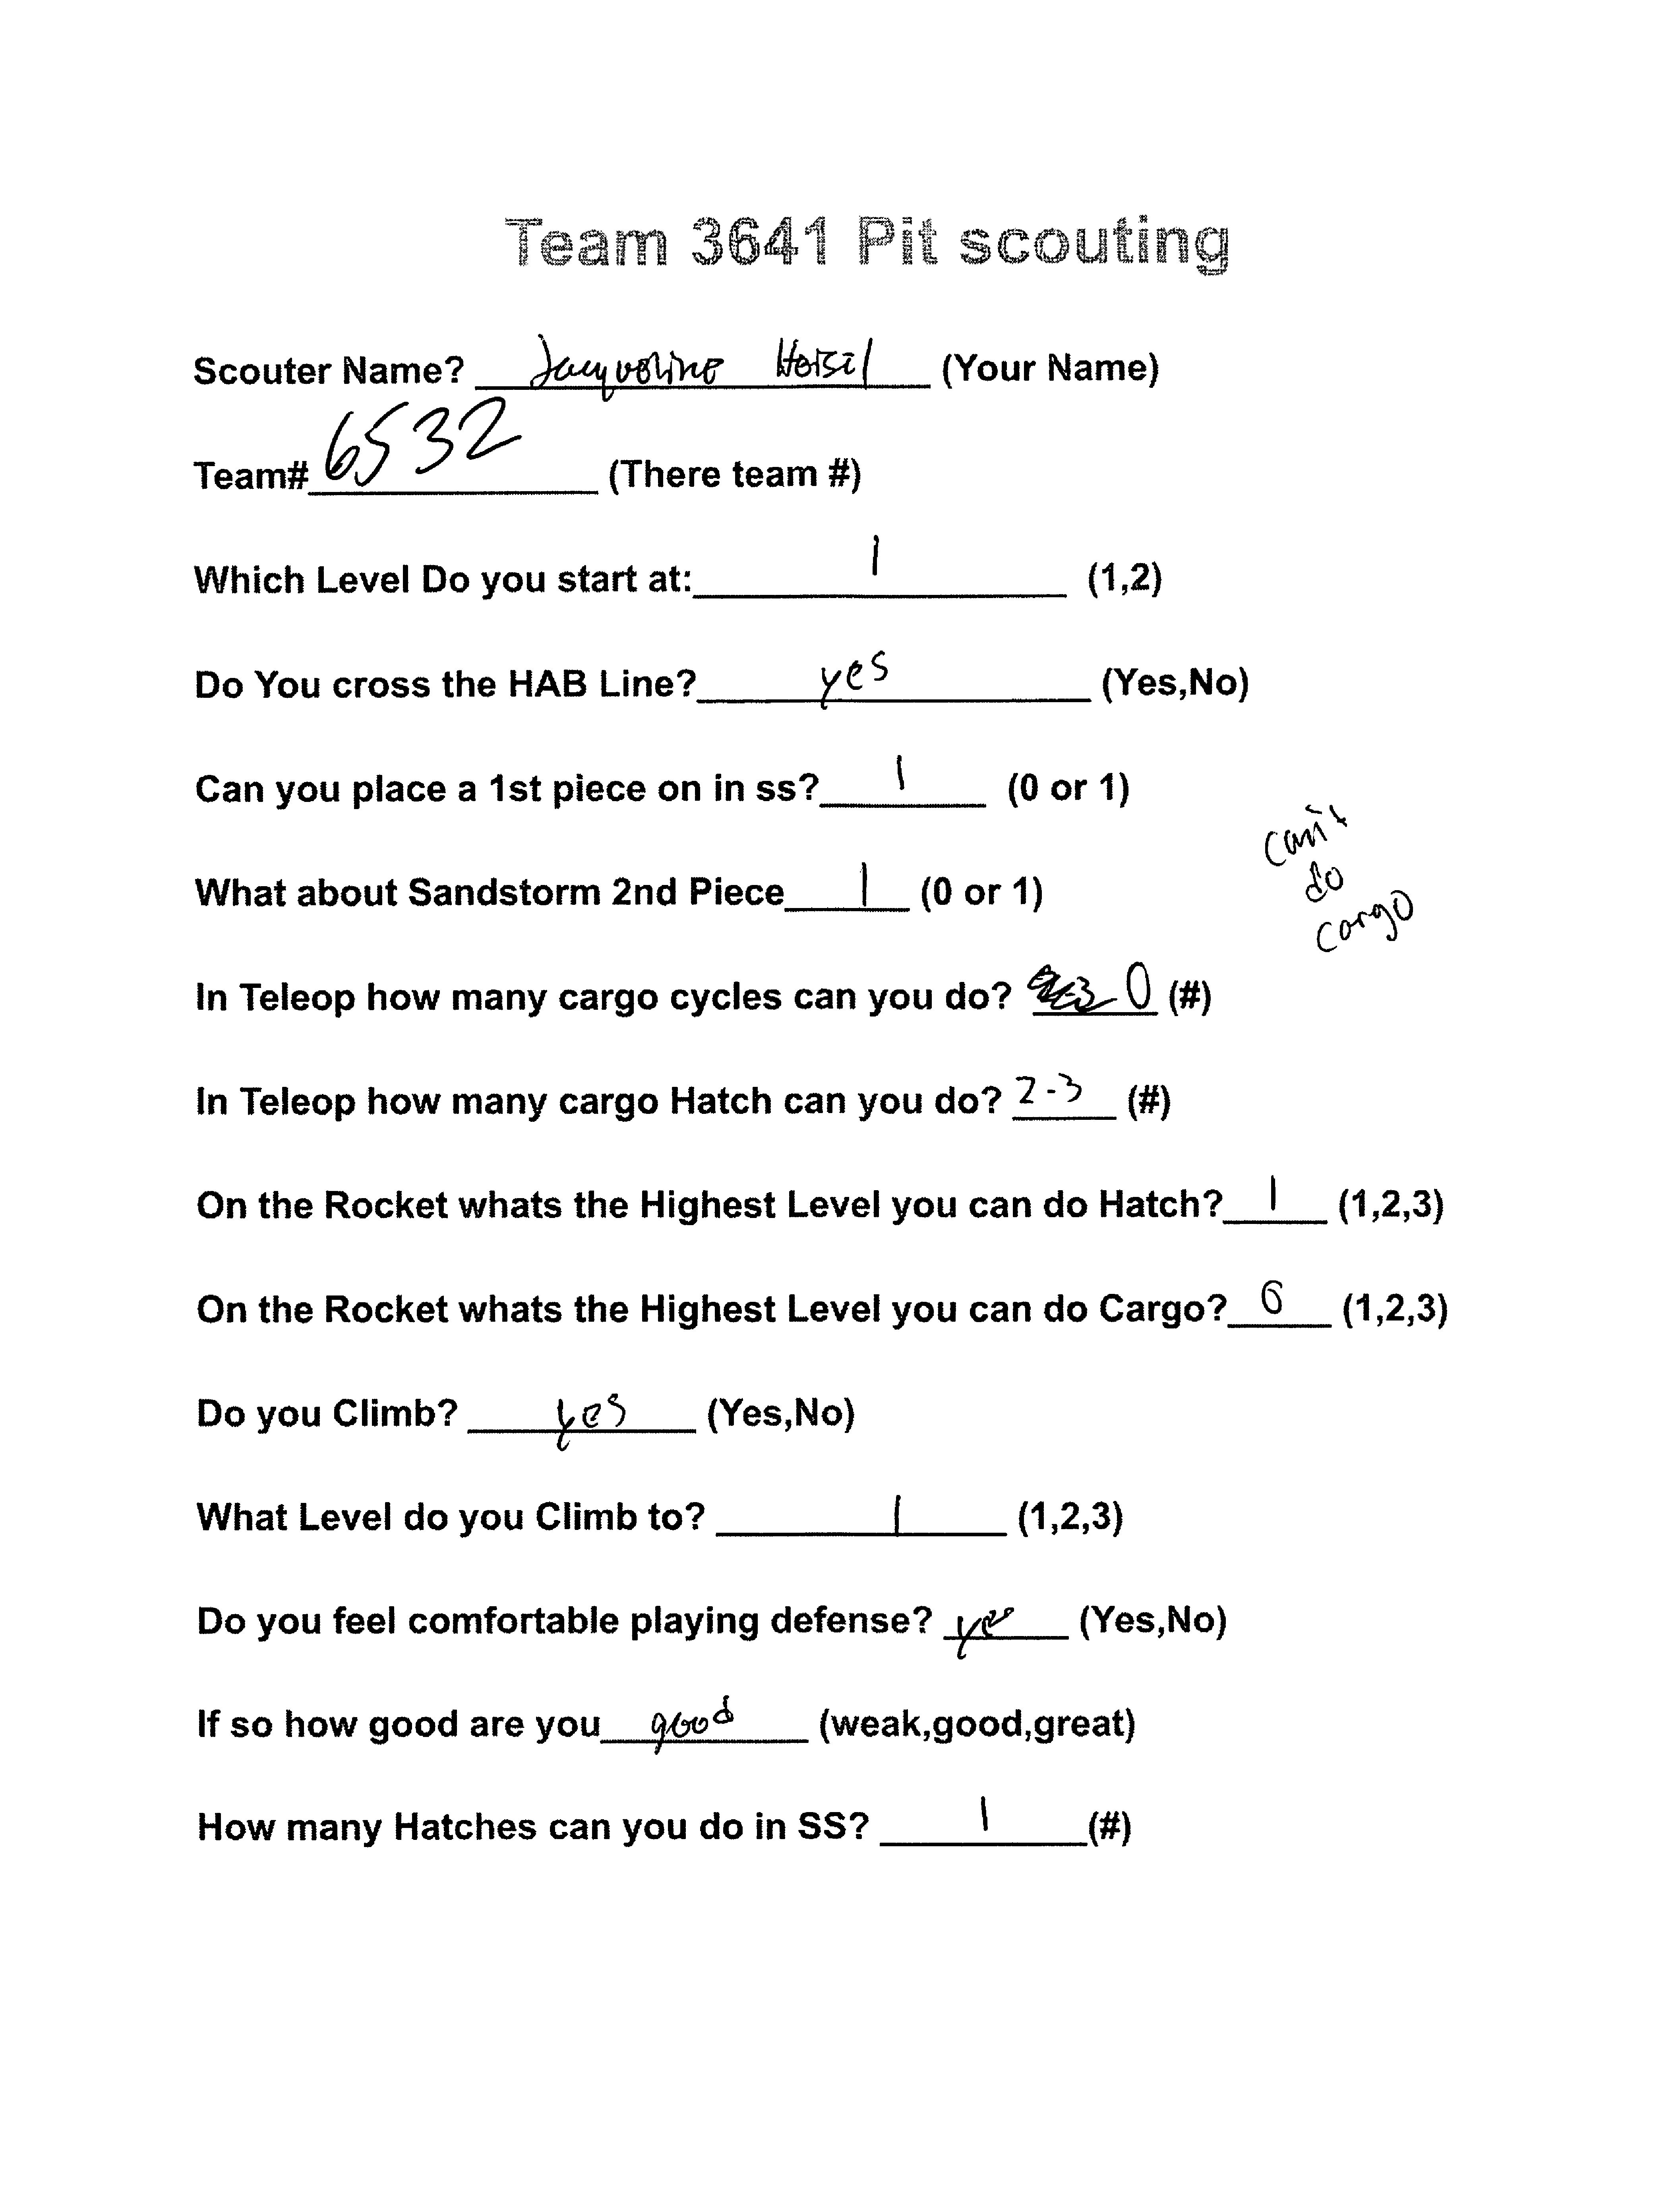 Team 3641 Pit scouting
Scouter Name? Jacqueline (Your Name)
Team# 6532 (There team #)
Which Level Do you start at: 1 (1,2)
Do You cross the HAB Line? yes (Yes,No)
Can you place a 1st piece on in ss? 1 (0 or 1)
can't
do
cargo
What about Sandstorm 2nd Piece 1 (0 or 1)
In Teleop how many cargo cycles can you do? 0 (#)
In Teleop how many cargo Hatch can you do? 2-3 (#)
On the Rocket whats the Highest Level you can do Hatch? 1 (1,2,3)
On the Rocket whats the Highest Level you can do Cargo? 0 (1,2,3)
Do you Climb? yes (Yes,No)
What Level do you Climb to? 1 (1,2,3)
Do you feel comfortable playing defense? yes (Yes,No)
If so how good are you good (weak,good,great)
How many Hatches can you do in SS? 1 (#)